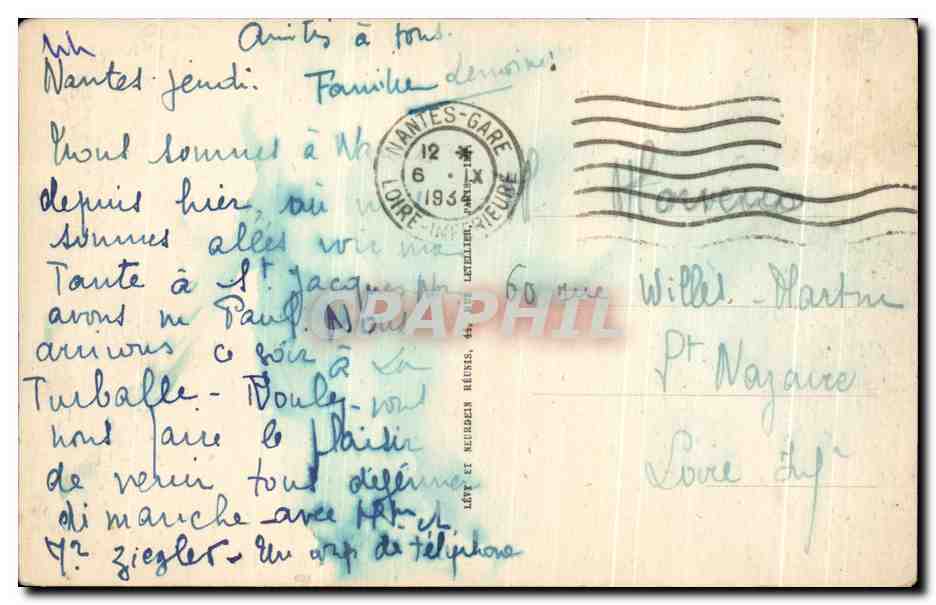 Amitiés à tous.
Nantes jeudi. Famille Lemoine
Nous sommes à
depuis hier, où
sommes allés voir ma
Tante à St Jacques
avons vu Paul. Nous
arrivons ce soir à La
Turballe - Voulez-vous
nous faire le plaisir
de venir tous déjeuner
dimanche avec Mme et
Mr Ziegler - Un coup de téléphone
NANTES-GARE
12 *
6 · IX
1934
LOIRE-INFÉRIEURE
LÉVY ET NEURDEIN RÉUNIS, 44, RUE LETELLIER, PARIS
60 rue Willès-Martin
St Nazaire
Loire Infre
CRAPHIL